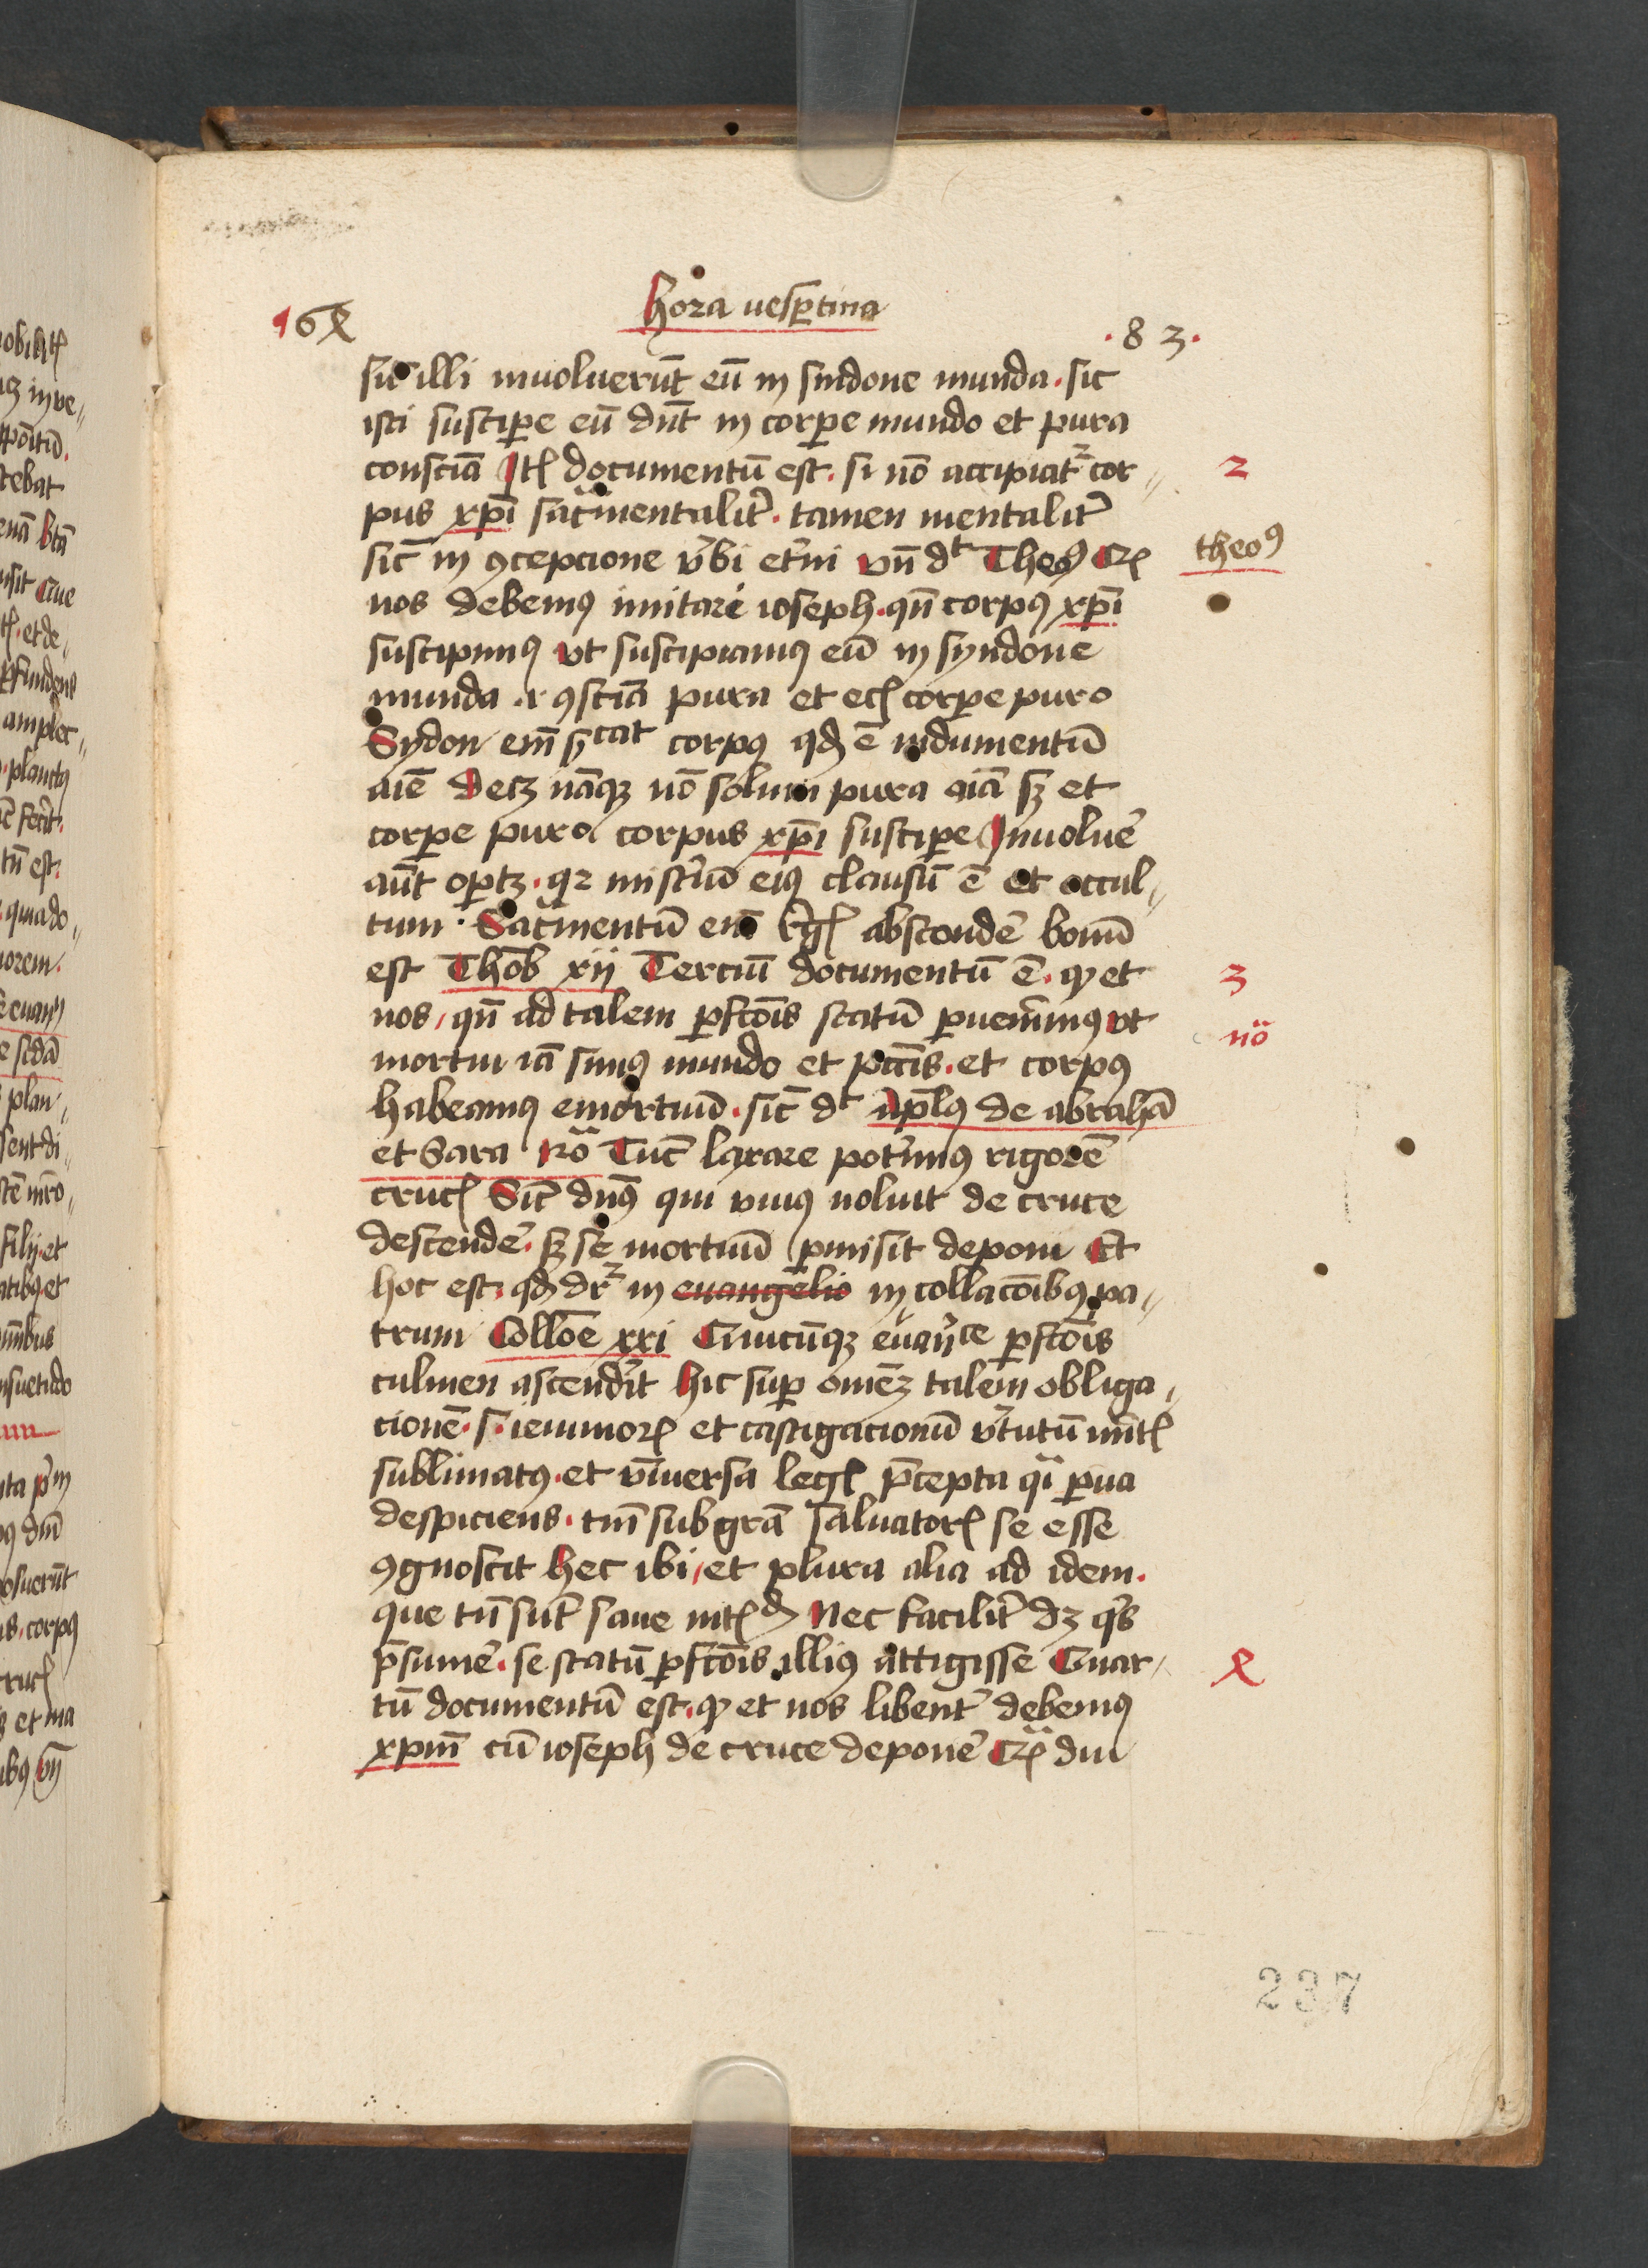 hora uesꝑtina
164
.83.
sic illi inuoluerūt eū in sindone munda . sic
isti susciꝑe eū dn̄t in corꝑe mundo et pura
consciā Itē documentū est . si nō accipiat᷑ cor
2
pus xp̄i sac̄mentalit̉ . tamen mentalit̉
sic̄ in ꝯcepcione v̉bi et̉ni vn̄ dt Theoꝰ
theoꝰ
nos debemꝰ imitari ioseph . qn̄ corpꝰ xp̄i
suscipimꝰ vt suscipiamꝰ eū in syndone
munda .i. ꝯsciā pura et ecī corꝑe puro
Sydon em̄ sꝫcat corpꝰ qđ ē indumentū
aīe decꝫ nāqꝫ nō solum pura aīa sꝫ et
corꝑe puro corpus xp̄i susciꝑe Inuoluē
aūt oꝑtꝫ . qꝛ mist̉iū eiꝰ clausū ē et occul
tum . Sac̄mentū em̄ rēḡ abscondē bonū
est Thob̄ xij Terciū documentū ē . ꝙ et
3
nos / qn̄ ad talem ꝑfcōis statū ꝑuenīmꝰ vt
nō
mortui iā simꝰ mundo et pccīs . et corpꝰ
habeamꝰ emortuū . sic̄ dt apl̄ꝰ de abrahā
et Sara Ro Tūc laxare pot̉imꝰ rigorē
crucꝭ Sic̄ dn̄ꝰ qui viuꝰ noluit de cruce
descendē . sꝫ se mortuū ꝑmisit deponi Et
hoc est . qđ dr̄ in euangelio in collacōibꝰ pa
trum Colloē xxi Quicūqꝫ euāᵍce ꝑfcōis
culmen ascendīt hic suꝑ omēꝫ talem obliga
cionē . s . ieiunioꝝ et castigacionū v̉tutū mīt̄
sublimatꝰ . et vniuersa legꝭ p̄cepta qī ꝑua
despiciens . tm̄ sub grā saluatorꝭ se esse
ꝯgnoscit hec ibi / et plura alia ad idem .
que tn̄ sūt sane intꝭđ Nec facilit̉ dꝫ qͥs
p̄sumē . se statū ꝑfcōis illiꝰ attigisse Quar
4
tū documentū est . ꝙ et nos libent̉ debemꝰ
xp̄m cū ioseph de cruce deponē Cꝝ diu
237